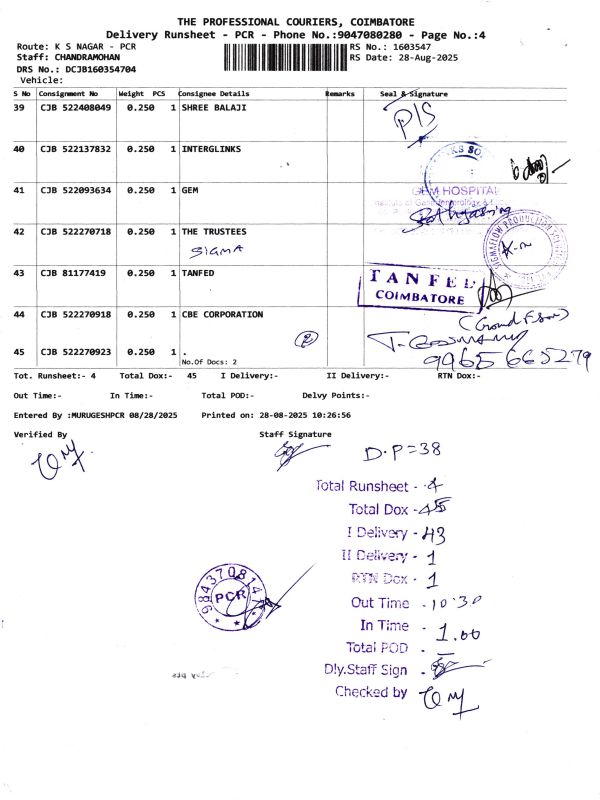 THE PROFESSIONAL COURIERS, COIMBATORE
Delivery Runsheet - PCR - Phone No.:9047080280 - Page No.:4
Route: K S NAGAR - PCR RS No.: 1603547
Staff: CHANDRAMOHAN RS Date: 28-Aug-2025
DRS No.: DCJB160354704
Vehicle:
S No Consignment No Weight PCS Consignee Details Remarks Seal & Signature
39 CJB 522408049 0.250 1 SHREE BALAJI P/S
40 CJB 522137832 0.250 1 INTERGLINKS
41 CJB 522093634 0.250 1 GEM GEM HOSPITAL
42 CJB 522270718 0.250 1 THE TRUSTEES
SIGMA
43 CJB 81177419 0.250 1 TANFED TANFED
COIMBATORE
44 CJB 522270918 0.250 1 CBE CORPORATION (Ground Floor)
45 CJB 522270923 0.250 1 . 9965665279
No.Of Docs: 2
Tot. Runsheet:- 4 Total Dox:- 45 I Delivery:- II Delivery:- RTN Dox:-
Out Time:- In Time:- Total POD:- Delvy Points:-
Entered By :MURUGESHPCR 08/28/2025 Printed on: 28-08-2025 10:26:56
Verified By Staff Signature
D.P=38
Total Runsheet - 4
Total Dox - 45
I Delivery - 43
II Delivery - 1
RTN Dox - 1
Out Time - 10.30
In Time - 1.00
Total POD -
Dly.Staff Sign -
Checked by
9843708147
PCR